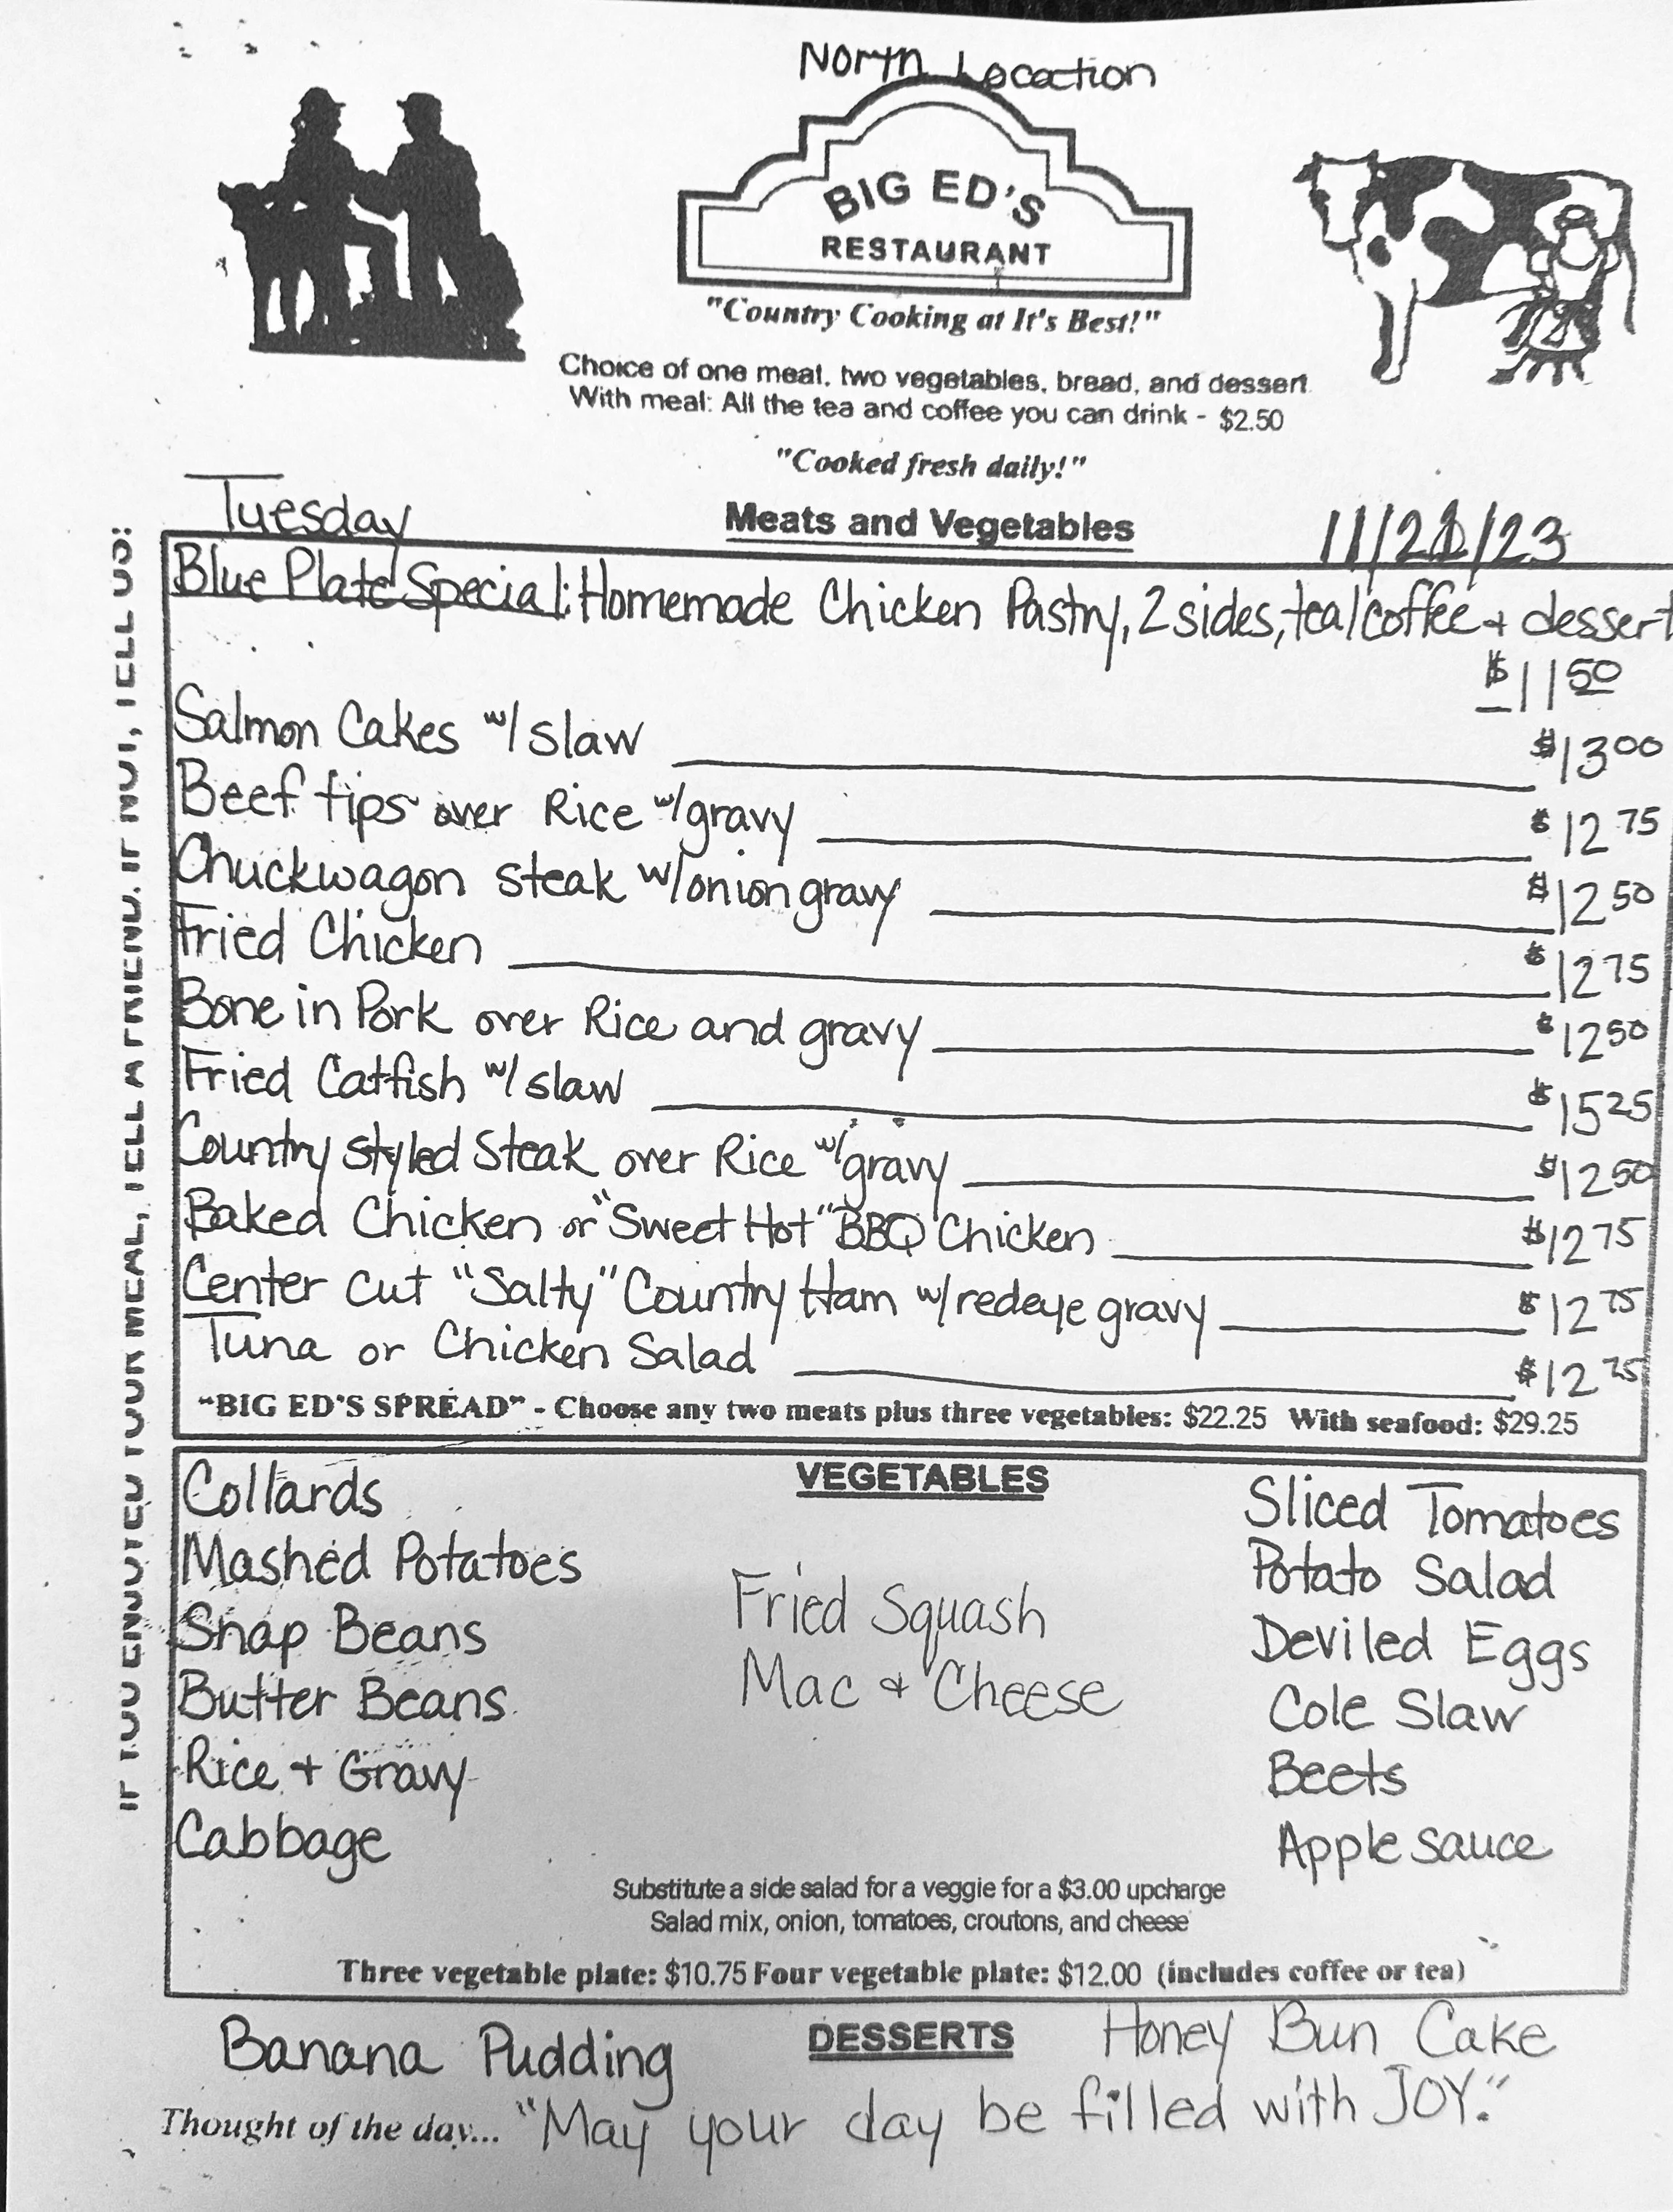 North Location
BIG ED'S
RESTAURANT
"Country Cooking at It's Best!"
Choice of one meat, two vegetables, bread, and dessert.
With meal: All the tea and coffee you can drink - $2.50
"Cooked fresh daily!"
Tuesday
Meats and Vegetables
11/21/23
Blue Plate Special: Homemade Chicken Pastry, 2 sides, tea/coffee + dessert
$11 50
Salmon Cakes w/ slaw $13 00
Beef tips over Rice w/ gravy $12 75
Chuckwagon steak w/ onion gravy $12 50
Fried Chicken $12 75
Bone in Pork over Rice and gravy $12 50
Fried Catfish w/ slaw $15 25
Country styled Steak over Rice w/ gravy $12 50
Baked Chicken or "Sweet Hot" BBQ Chicken $12 75
Center Cut "Salty" Country Ham w/ redeye gravy $12 75
Tuna or Chicken Salad $12 75
"BIG ED'S SPREAD" - Choose any two meats plus three vegetables: $22.25 With seafood: $29.25
VEGETABLES
Collards
Mashed Potatoes
Snap Beans
Butter Beans
Rice + Gravy
Cabbage
Fried Squash
Mac + Cheese
Sliced Tomatoes
Potato Salad
Deviled Eggs
Cole Slaw
Beets
Apple Sauce
Substitute a side salad for a veggie for a $3.00 upcharge
Salad mix, onion, tomatoes, croutons, and cheese
Three vegetable plate: $10.75 Four vegetable plate: $12.00 (includes coffee or tea)
DESSERTS
Banana Pudding
Honey Bun Cake
Thought of the day... "May your day be filled with JOY."
IF YOU ENJOYED YOUR MEAL, TELL A FRIEND. IF NOT, TELL US: